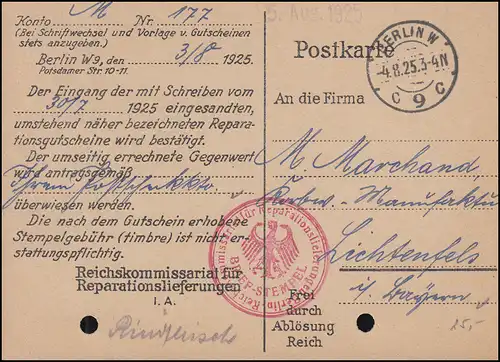 Konto M Nr. 177
(Bei Schriftwechsel und Vorlage v. Gutscheinen
stets anzugeben.)
Berlin W9, den 3/8 1925.
Potsdamer Str. 10-11.
Der Eingang der mit Schreiben vom
30/7 1925 eingesandten,
umstehend näher bezeichneten Repara-
tionsgutscheine wird bestätigt.
Der umseitig errechnete Gegenwert
wird antragsgemäß
Ihrem Postscheckkto
überwiesen werden.
Die nach dem Gutschein erhobene
Stempelgebühr (timbre) ist nicht er-
stattungspflichtig.
Reichskommissariat für
Reparationslieferungen
I. A.
5. Aug. 1925
Postkarte
BERLIN W
-4.8.25.3-4N
C 9 C
An die Firma
M Marchand
Korbw.-Manufaktur
Lichtenfels
i/Bayern
BRIEF-STEMPEL
Frei
durch
Ablösung
Reich
25,-